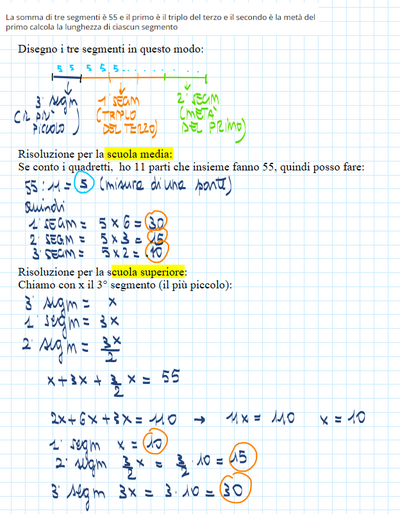 La somma di tre segmenti è 55 e il primo è il triplo del terzo e il secondo è la metà del
primo calcola la lunghezza di ciascun segmento
Disegno i tre segmenti in questo modo:
5 5 5 5 5. . . . . . . . .
3° segm 1° SEGM 2° SEGM
(IL PIU' (TRIPLO (META'
PICCOLO) DEL TERZO) DEL PRIMO)
Risoluzione per la scuola media:
Se conto i quadretti, ho 11 parti che insieme fanno 55, quindi posso fare:
55 : 11 = 5 (misura di una parte)
quindi
1° SEGM = 5 x 6 = 30
2° SEGM = 5 x 3 = 15
3° SEGM = 5 x 2 = 10
Risoluzione per la scuola superiore:
Chiamo con x il 3° segmento (il più piccolo):
3° segm = x
1° segm = 3x
2° segm = 3x/2
x + 3x + 3/2 x = 55
2x + 6x + 3x = 110 → 11x = 110 x = 10
1° segm x = 10
2° segm 3/2 x = 3/2 · 10 = 15
3° segm 3x = 3 · 10 = 30